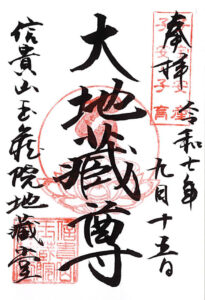 奉拝
令和七年
九月十五日
大地蔵尊
信貴山玉蔵院地蔵堂